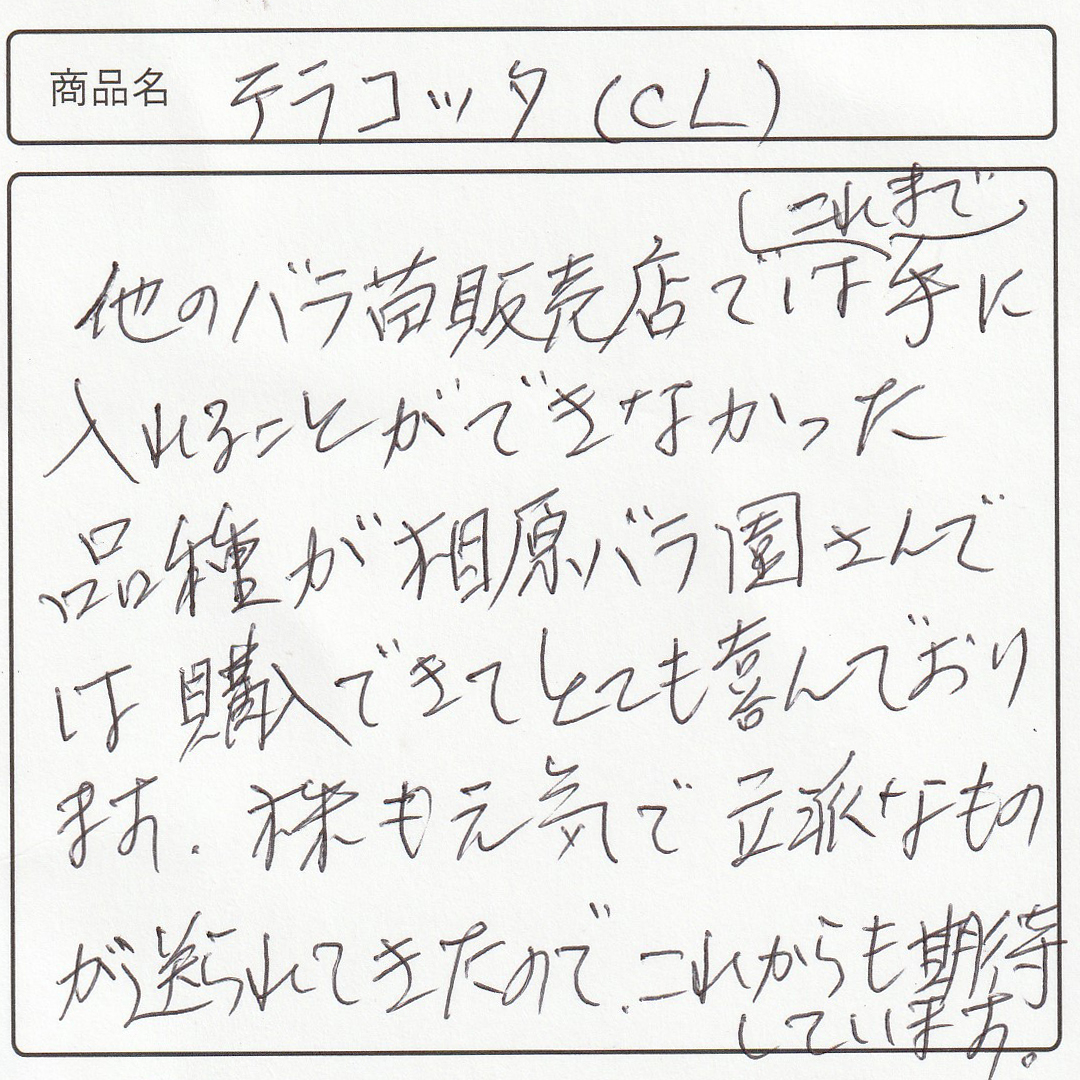 商品名 テラコッタ(CL)
(これまで)
他のバラ苗販売店では手に
入れることができなかった
品種が相原バラ園さんで
は購入できてとても喜んでおり
ます. 株も元気で立派なもの
が送られてきたので、これからも期待
しています。